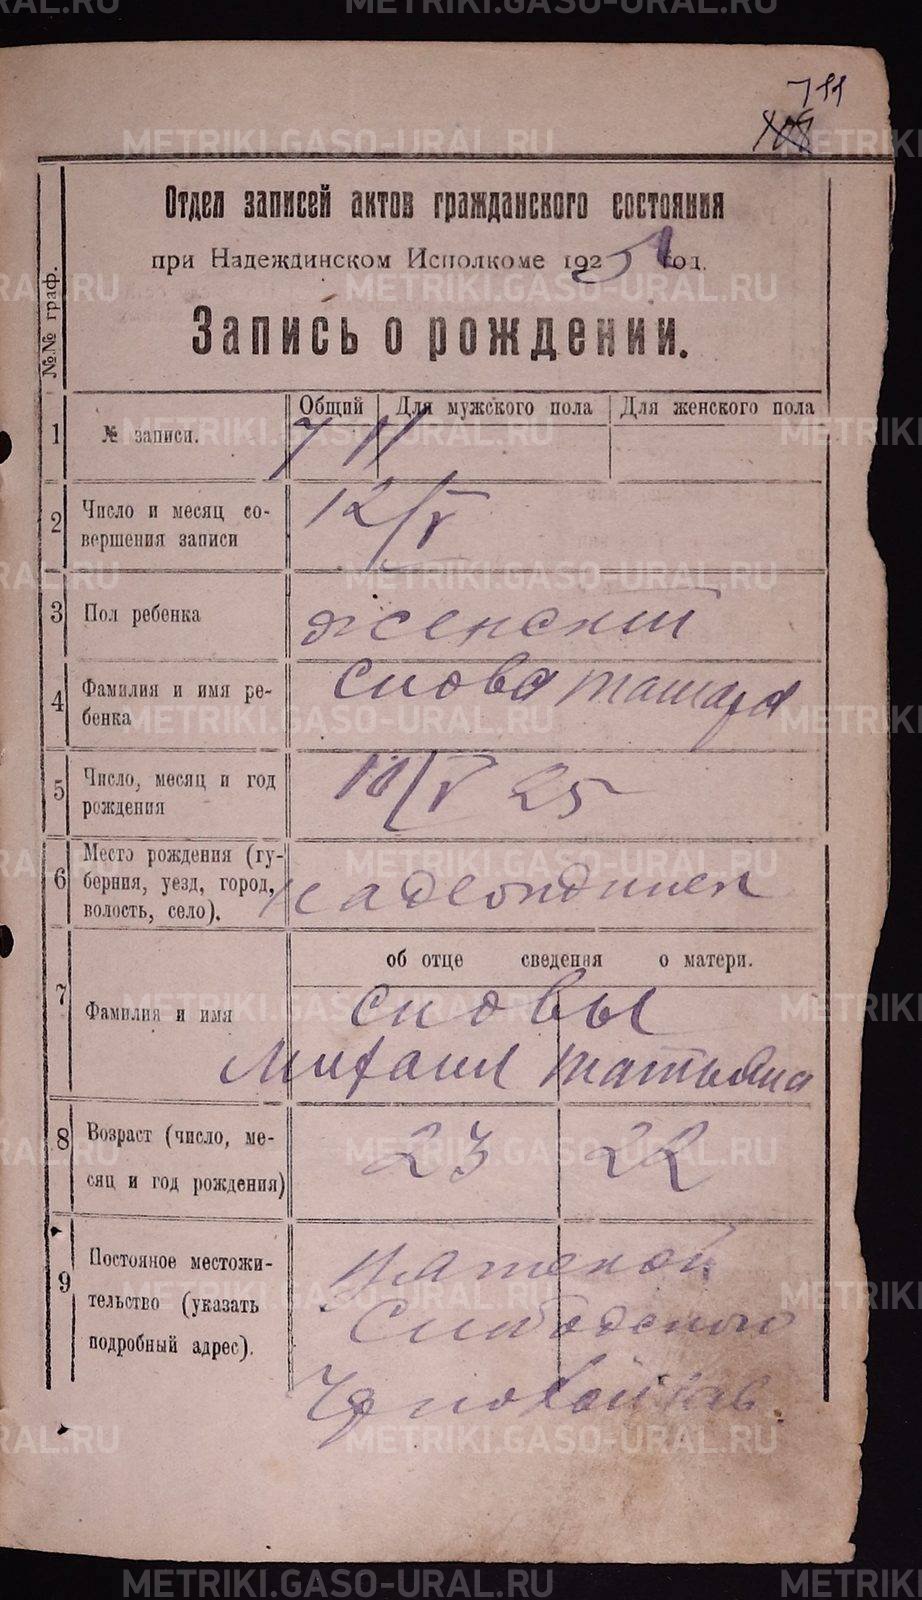 METRIKI.GASO-URAL.RU
711
108
Отдел записей актов гражданского состояния
при Надеждинском Исполкоме 1925 год.
Запись о рождении.
№№ граф.
Общий Для мужского пола Для женского пола
1 № записи. 711
2 Число и месяц со-
вершения записи 12/V
3 Пол ребенка женский
4 Фамилия и имя ре-
бенка Сновa Тамара
5 Число, месяц и год
рождения 10/V 25
6 Место рождения (гу-
берния, уезд, город,
волость, село).
об отце сведения о матери.
7 Фамилия и имя Сновы
Михаил Татьяна
8 Возраст (число, ме-
сяц и год рождения) 23 22
9 Постоянное местожи-
тельство (указать
подробный адрес).
Вятской